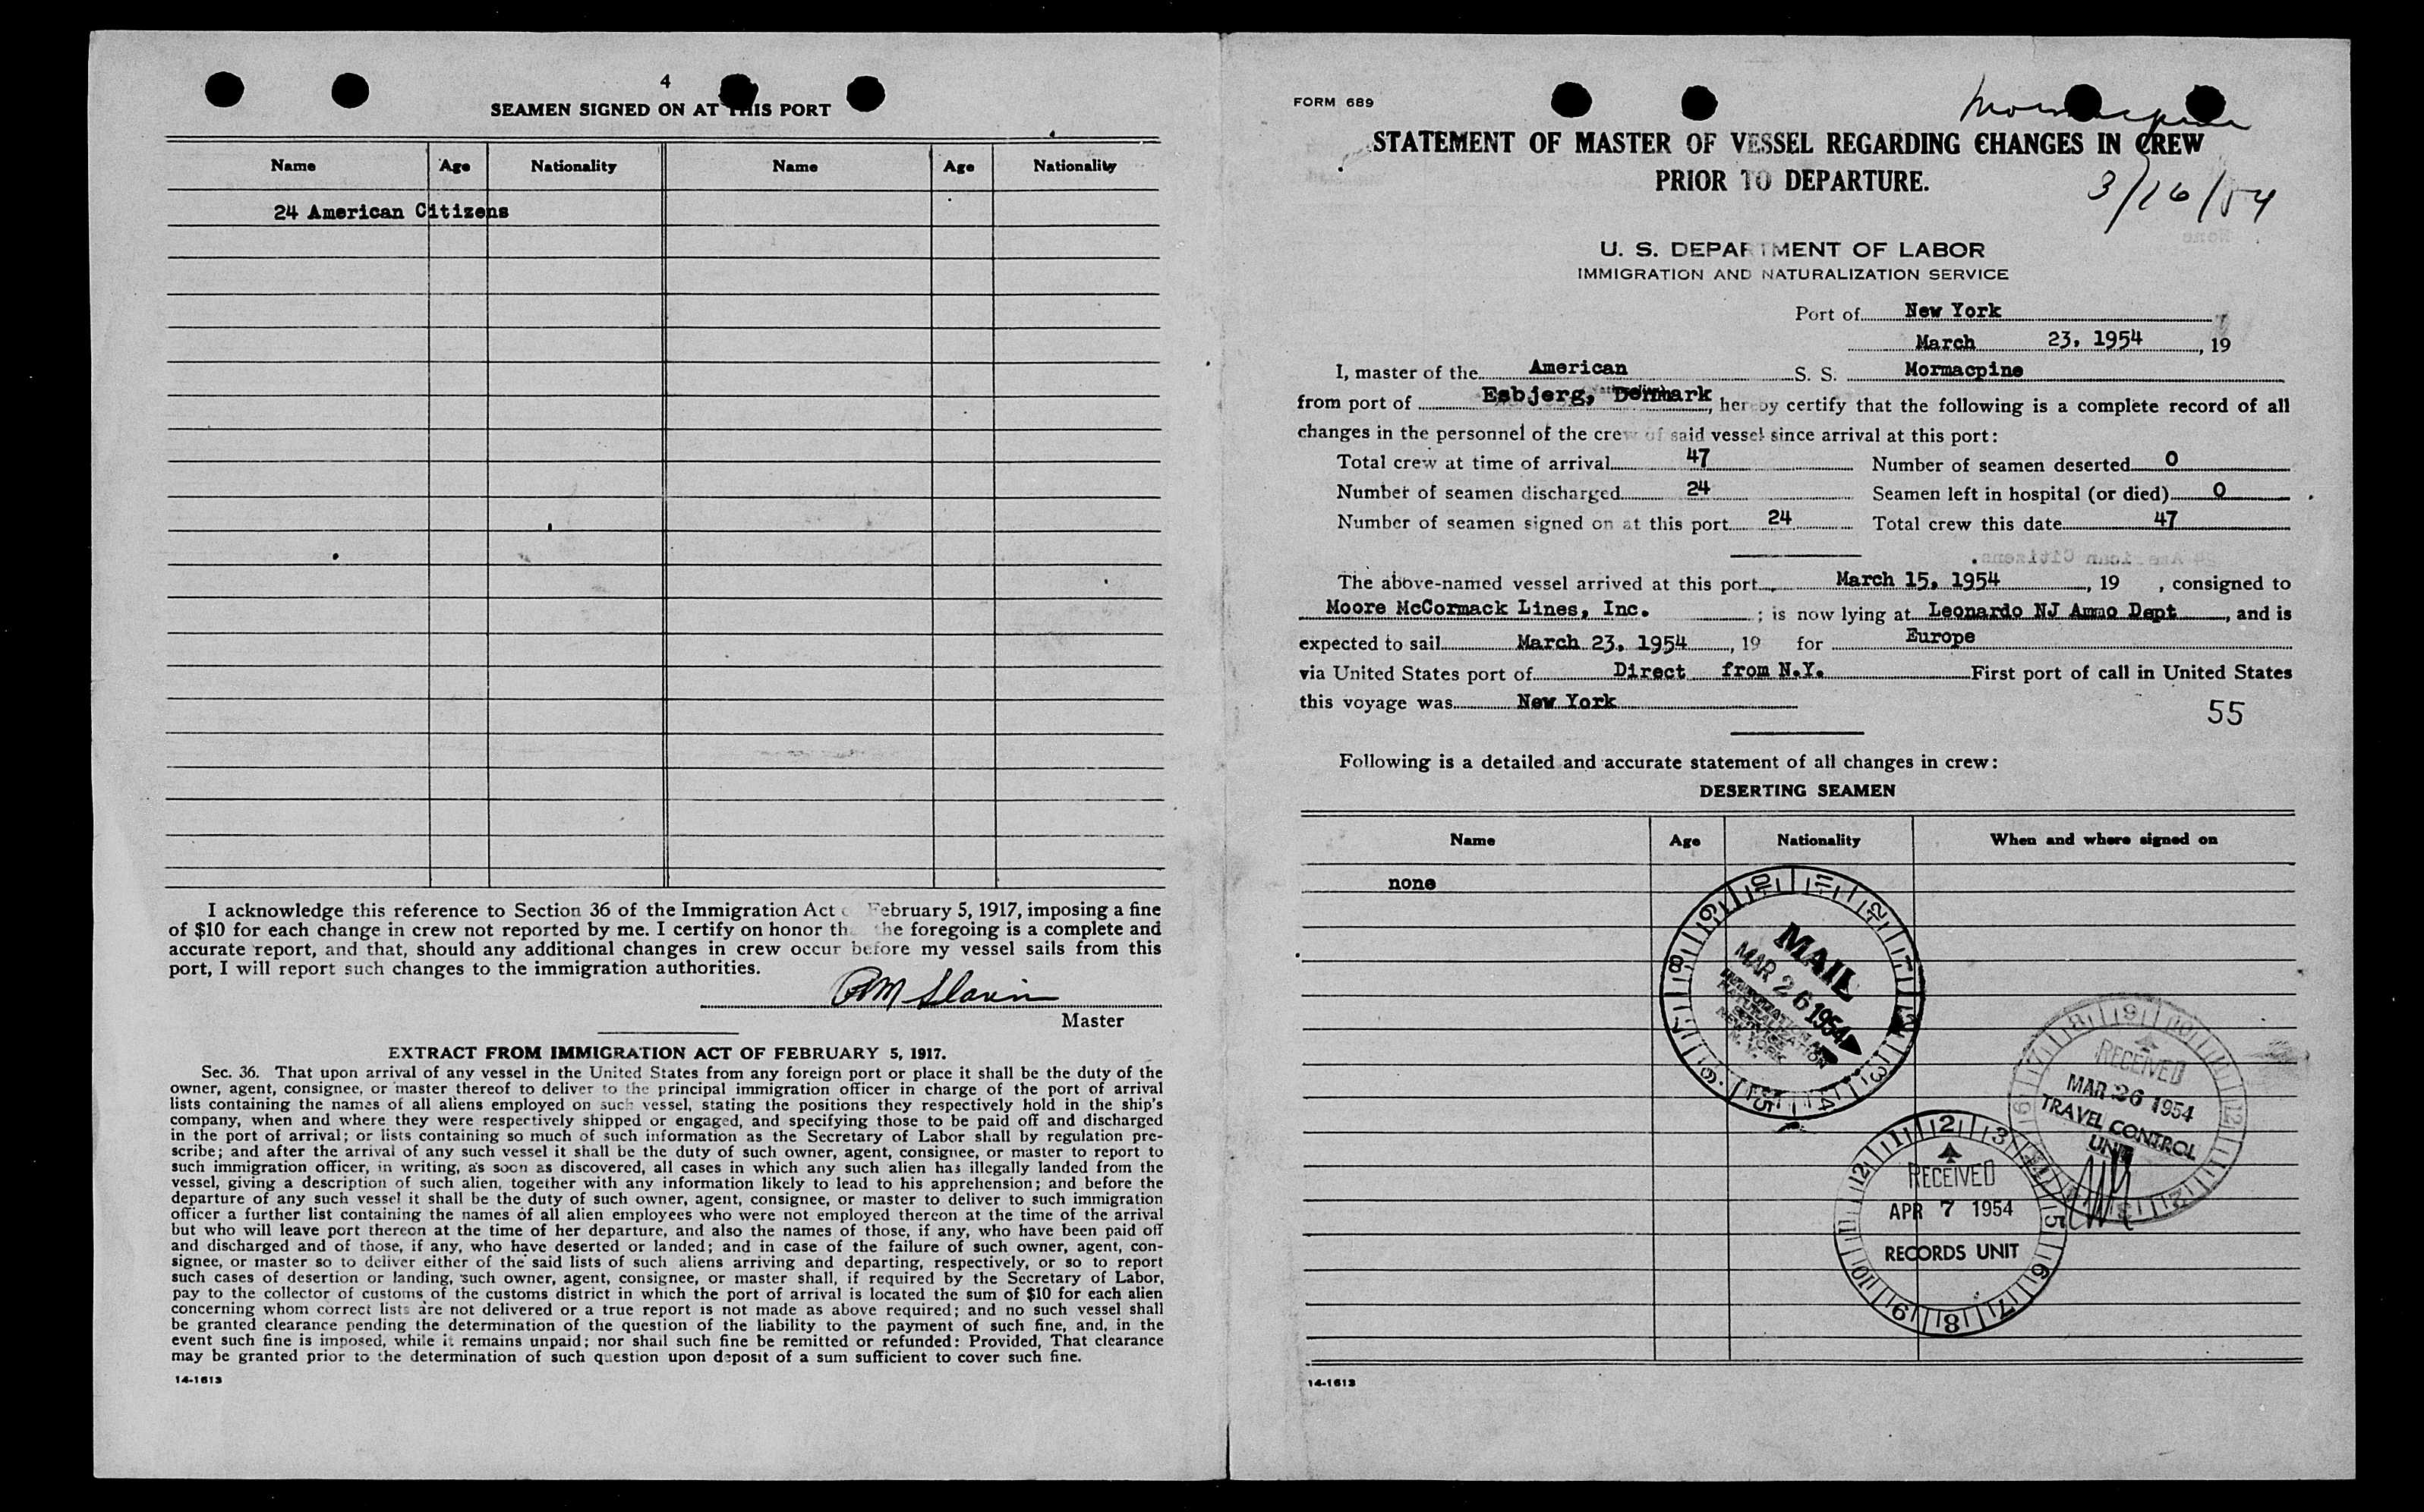 4
SEAMEN SIGNED ON AT THIS PORT
Name Age Nationality Name Age Nationality
24 American Citizens
I acknowledge this reference to Section 36 of the Immigration Act of February 5, 1917, imposing a fine
of $10 for each change in crew not reported by me. I certify on honor that the foregoing is a complete and
accurate report, and that, should any additional changes in crew occur before my vessel sails from this
port, I will report such changes to the immigration authorities.
Slavin
Master
EXTRACT FROM IMMIGRATION ACT OF FEBRUARY 5, 1917.
Sec. 36. That upon arrival of any vessel in the United States from any foreign port or place it shall be the duty of the
owner, agent, consignee, or master thereof to deliver to the principal immigration officer in charge of the port of arrival
lists containing the names of all aliens employed on such vessel, stating the positions they respectively hold in the ship's
company, when and where they were respectively shipped or engaged, and specifying those to be paid off and discharged
in the port of arrival; or lists containing so much of such information as the Secretary of Labor shall by regulation pre-
scribe; and after the arrival of any such vessel it shall be the duty of such owner, agent, consignee, or master to report to
such immigration officer, in writing, as soon as discovered, all cases in which any such alien has illegally landed from the
vessel, giving a description of such alien, together with any information likely to lead to his apprehension; and before the
departure of any such vessel it shall be the duty of such owner, agent, consignee, or master to deliver to such immigration
officer a further list containing the names of all alien employees who were not employed thereon at the time of the arrival
but who will leave port thereon at the time of her departure, and also the names of those, if any, who have been paid off
and discharged and of those, if any, who have deserted or landed; and in case of the failure of such owner, agent, con-
signee, or master so to deliver either of the said lists of such aliens arriving and departing, respectively, or so to report
such cases of desertion or landing, such owner, agent, consignee, or master shall, if required by the Secretary of Labor,
pay to the collector of customs of the customs district in which the port of arrival is located the sum of $10 for each alien
concerning whom correct lists are not delivered or a true report is not made as above required; and no such vessel shall
be granted clearance pending the determination of the question of the liability to the payment of such fine, and, in the
event such fine is imposed, while it remains unpaid; nor shall such fine be remitted or refunded: Provided, That clearance
may be granted prior to the determination of such question upon deposit of a sum sufficient to cover such fine.
14-1613
FORM 689
Mormacpine
STATEMENT OF MASTER OF VESSEL REGARDING CHANGES IN CREW
PRIOR TO DEPARTURE.
3/16/54
U. S. DEPARTMENT OF LABOR
IMMIGRATION AND NATURALIZATION SERVICE
Port of New York
March 23, 1954, 19
I, master of the American S. S. Mormacpine
from port of Esbjerg, Denmark, hereby certify that the following is a complete record of all
changes in the personnel of the crew of said vessel since arrival at this port:
Total crew at time of arrival 47 Number of seamen deserted 0
Number of seamen discharged 24 Seamen left in hospital (or died) 0
Number of seamen signed on at this port 24 Total crew this date 47
The above-named vessel arrived at this port March 15, 1954, 19 , consigned to
Moore McCormack Lines, Inc. ; is now lying at Leonardo NJ Ammo Dept, and is
expected to sail March 23, 1954, 19 for Europe
via United States port of Direct from N.Y. First port of call in United States
this voyage was New York
55
Following is a detailed and accurate statement of all changes in crew:
DESERTING SEAMEN
Name Age Nationality When and where signed on
none
MAIL
MAR 26 1954
IMMIGRATION &
NATURALIZATION
SERVICE
NEW YORK
N. Y.
RECEIVED
MAR 26 1954
TRAVEL CONTROL
UNIT
RECEIVED
APR 7 1954
RECORDS UNIT
14-1613